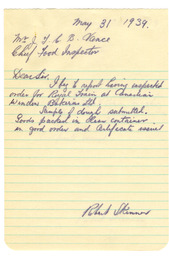 May 31 1939.
Mr. J. T. C. B. Vence
Chief Food Inspector
Dear Sir.
I beg to report having inspected
order for Royal Train at Canadian
Bakeries Ltd.
Sample of dough submitted.
Goods packed in clean container
in good order and certificate issued
Robert Skinner